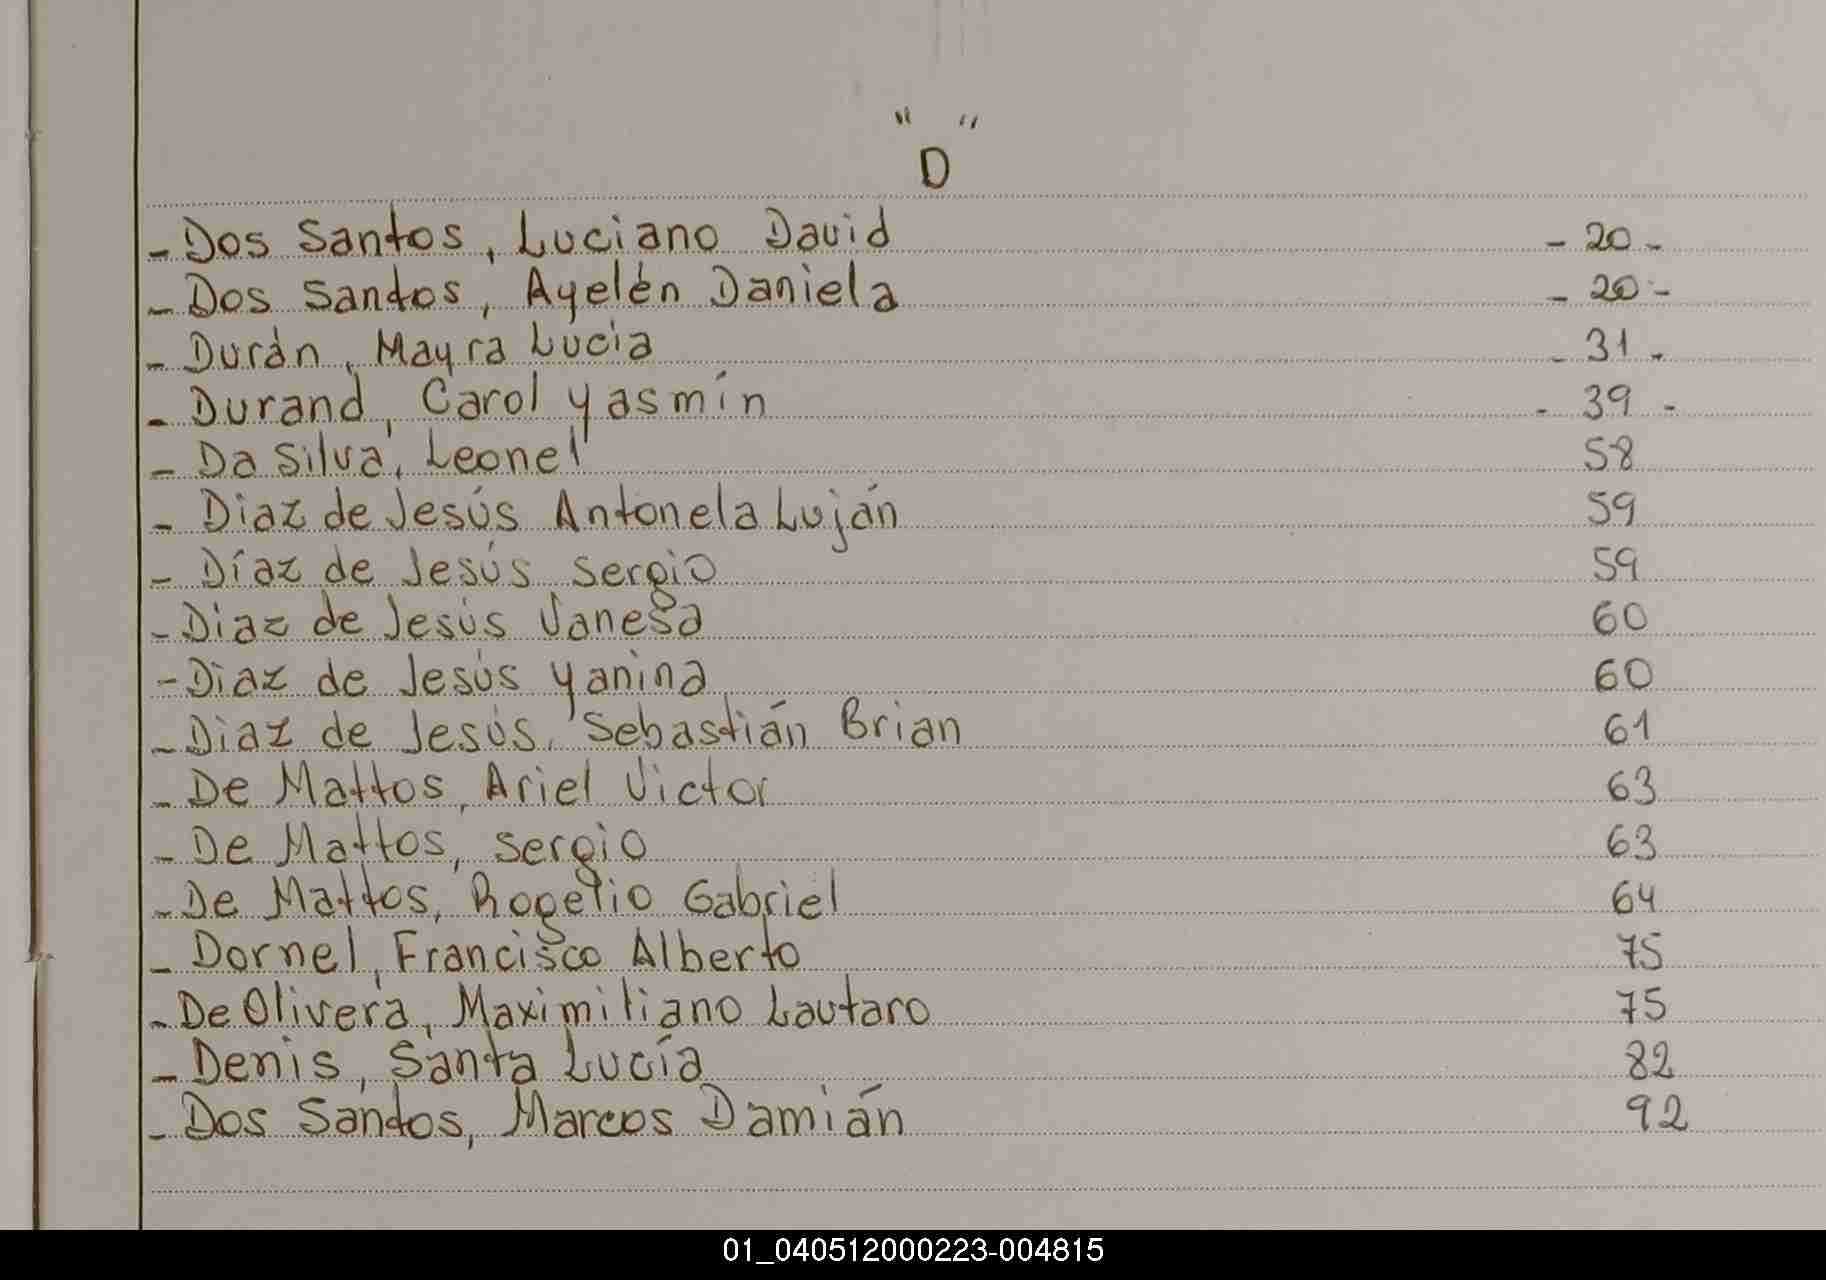 " "
D
- Dos Santos, Luciano David - 20 -
- Dos Santos, Ayelén Daniela - 20 -
- Durán, Mayra Lucia - 31 -
- Durand, Carol Yasmín - 39 -
- Da Silva, Leonel 58
- Diaz de Jesús Antonela Luján 59
- Díaz de Jesús Sergio 59
- Diaz de Jesús Vanesa 60
- Diaz de Jesús Yanina 60
- Diaz de Jesús, Sebastián Brian 61
- De Mattos, Ariel Victor 63
- De Mattos, Sergio 63
- De Mattos, Rogelio Gabriel 64
- Dornel, Francisco Alberto 75
- De Olivera, Maximiliano Lautaro 75
- Denis, Santa Lucía 82
- Dos Santos, Marcos Damián 92
01_040512000223-004815